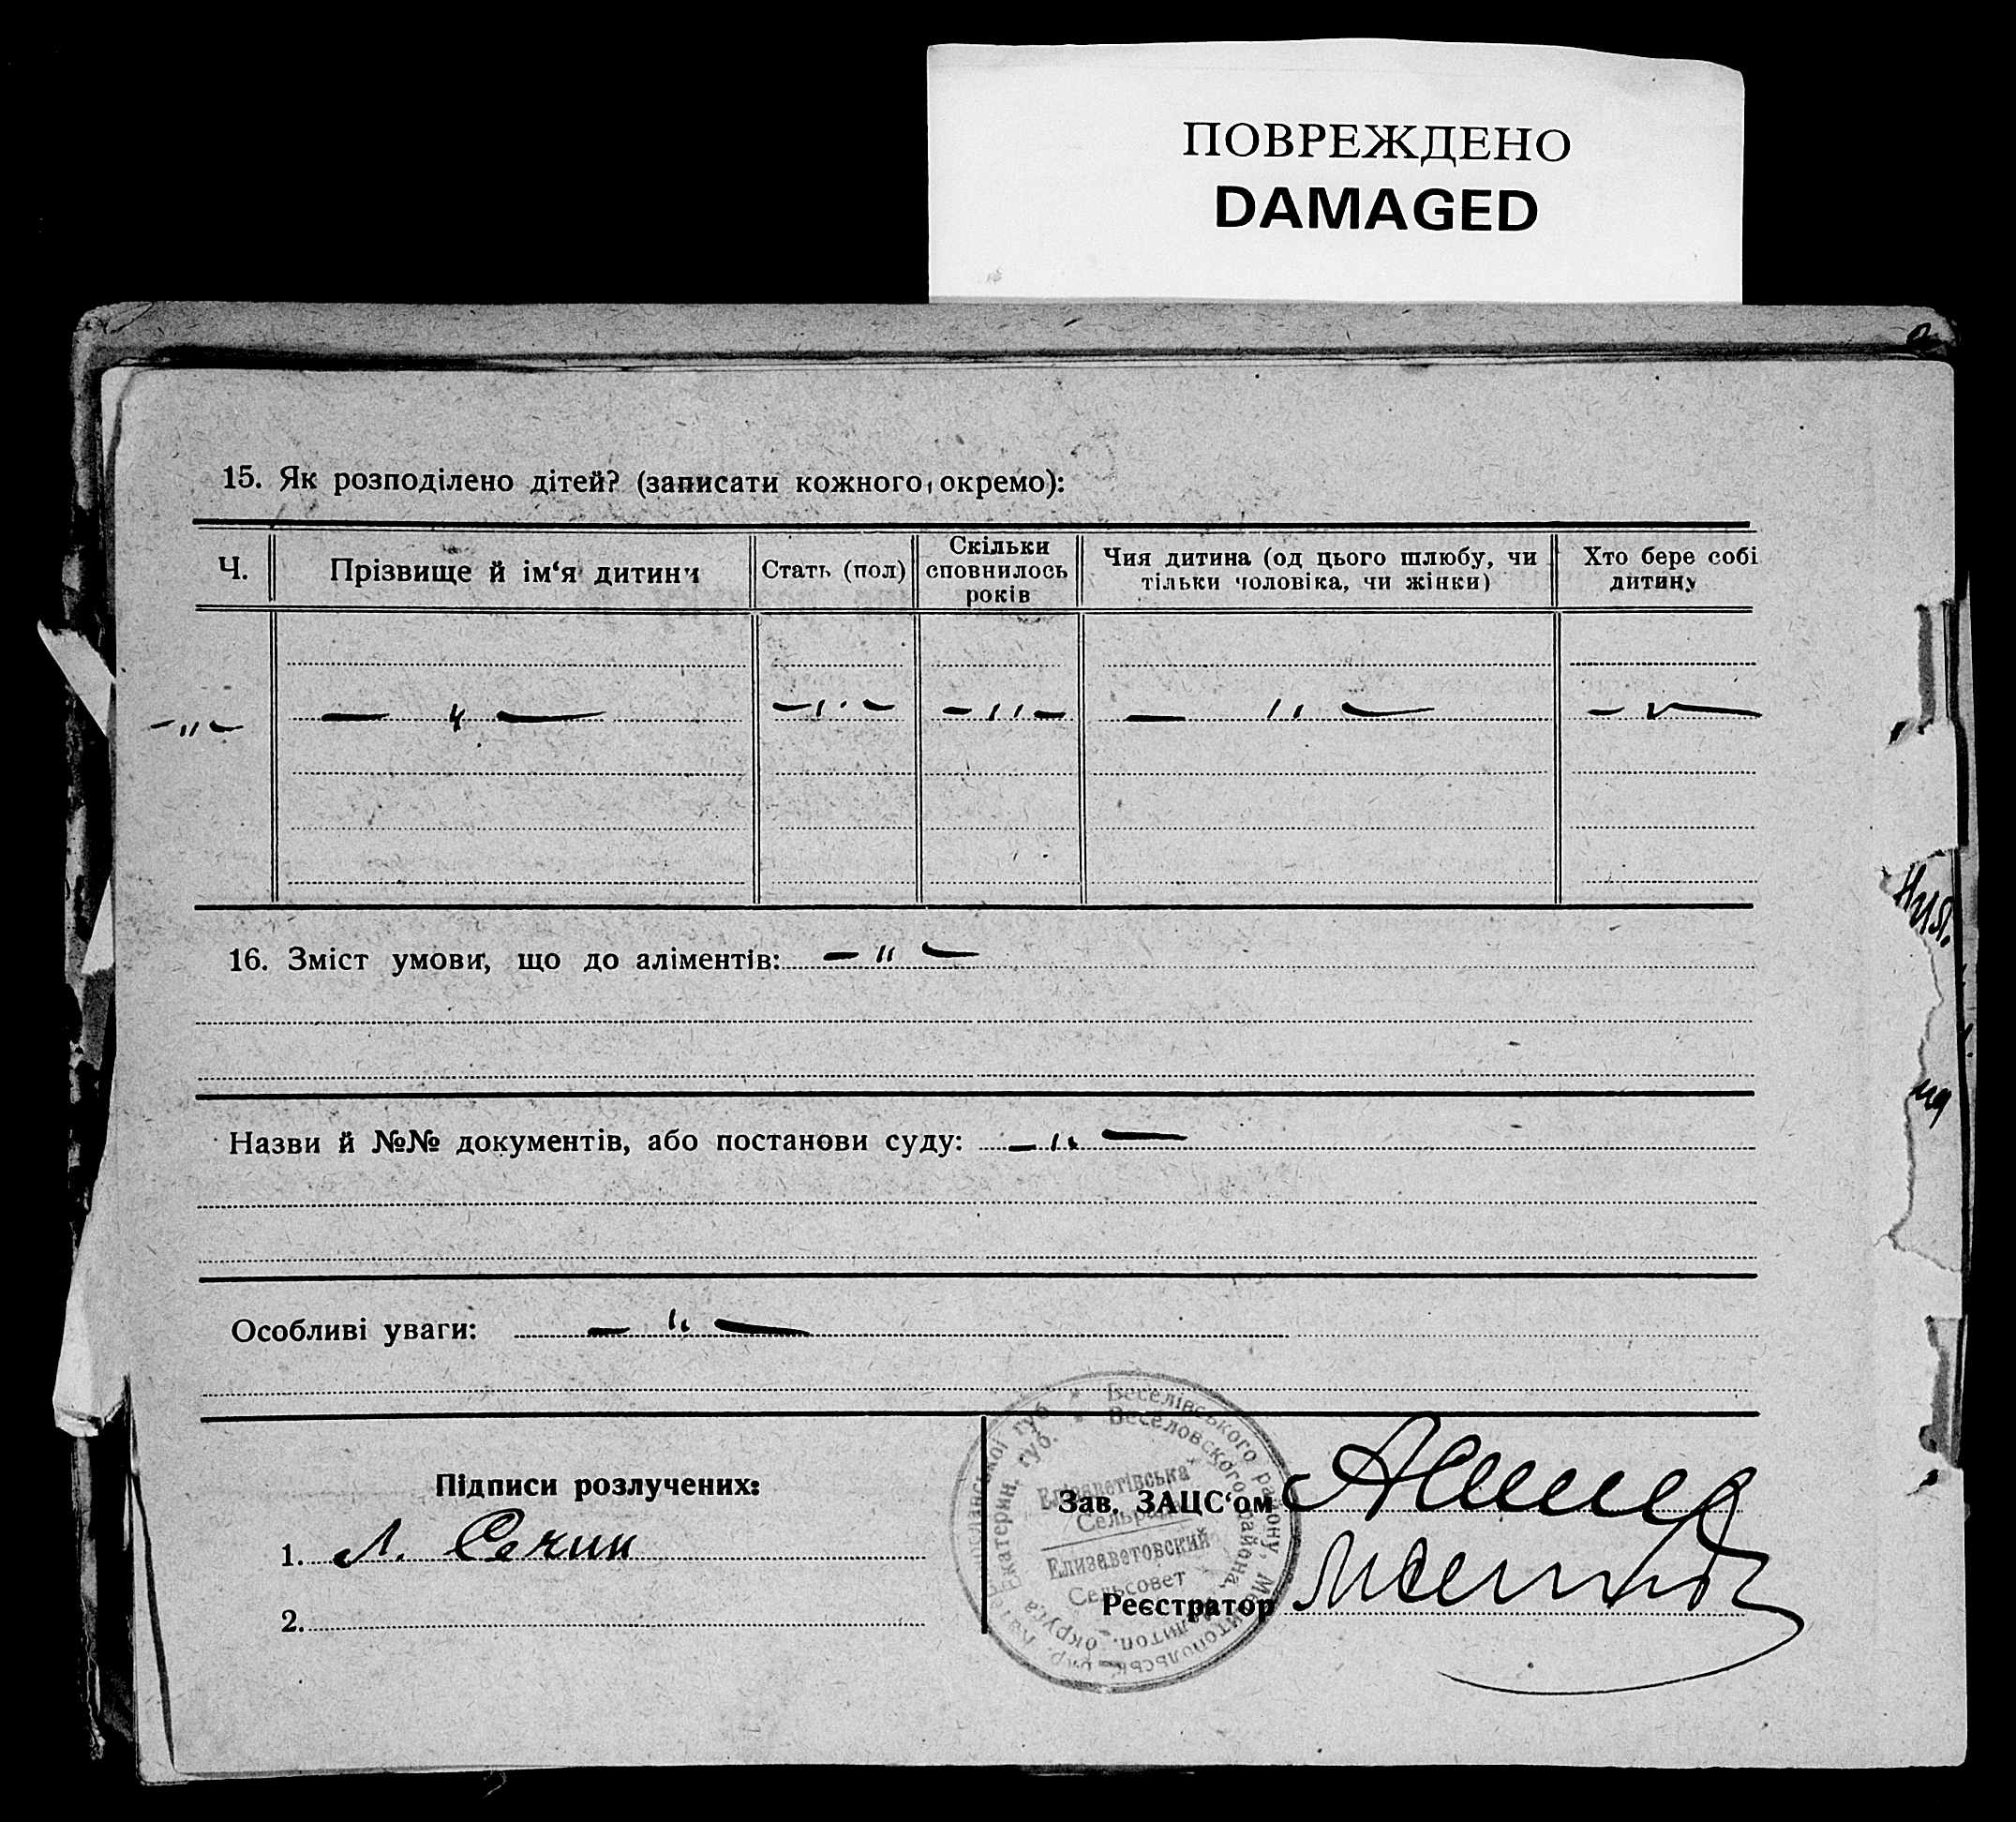 ПОВРЕЖДЕНО
DAMAGED
15. Як розподілено дітей? (записати кожного окремо):
Ч.
Прізвище й ім‘я дитини
Стать (пол)
Скільки
сповнилось
років
Чия дитина (од цього шлюбу, чи
тільки чоловіка, чи жінки)
Хто бере собі
дитину
— " —
— " —
— " —
— " —
— " —
— " —
16. Зміст умови, що до аліментів: — " —
Назви й №№ документів, або постанови суду: — " —
Особливі уваги: — " —
Веселівського району, Мелітопольськ
Веселовского района, Мелитоп. округа Екатерин. губ.
Елізаветівська
Сельрада
Елизаветовский
Сельсовет
Підписи розлучених:
1. Л. Сечин
2.
Зав. ЗАЦС‘ом
Реєстратор